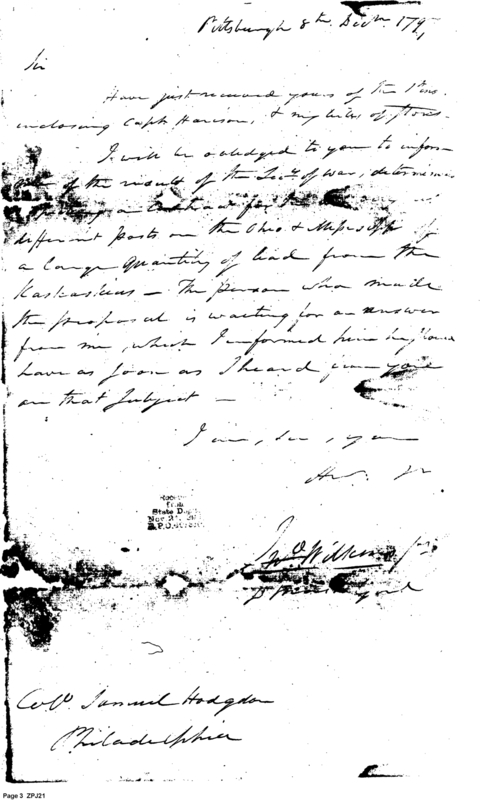 Pittsburgh 8th Decr. 179
Sir
Have just received yours of the 1st Inst.
enclosing Capt. Harrison, & my bills of Stores
I will be obledged to you to inform
me of the result of the Secy. of War, determin
for the
different Posts on the Ohio & Missisippi of
a large Quantity of lead from the
Kaskaskias — The person who made
the proposal is waiting for an answer
from me, which I informed him he should
have as soon as I heard from you
on that Subject —
I am, Sir, your
Hu. Sr
Jno. Wilkins Jr.
Colo. Samuel Hodgdon
Philadelphia
from
State De
Nov 2
Page 3 ZPJ21